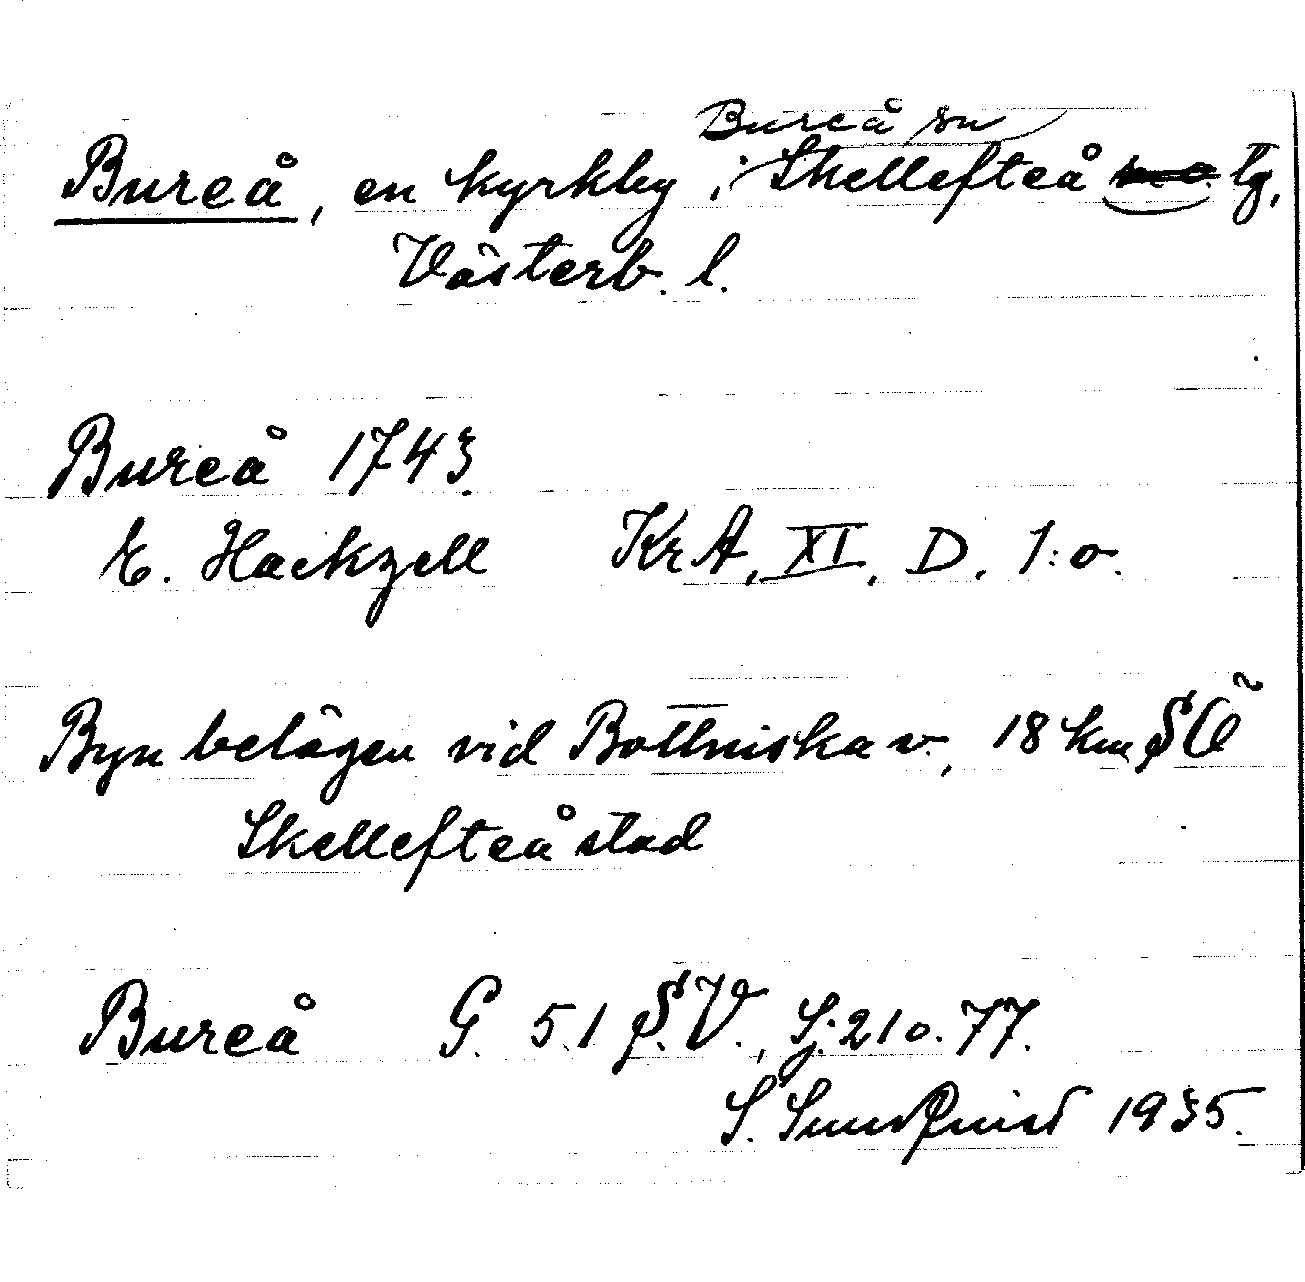 Bureå sn
Bureå, en kyrkby i Skellefteå tg,
Västerb. l.
Bureå 1743.
E. Hackzell KrA, XI, D. 1:o.
Byn belägen vid Bottniska v., 18 km SÖ
Skellefteå stad
Bureå G. 51 S.V., Lj. 210.77.
S. Sundquist 1935.